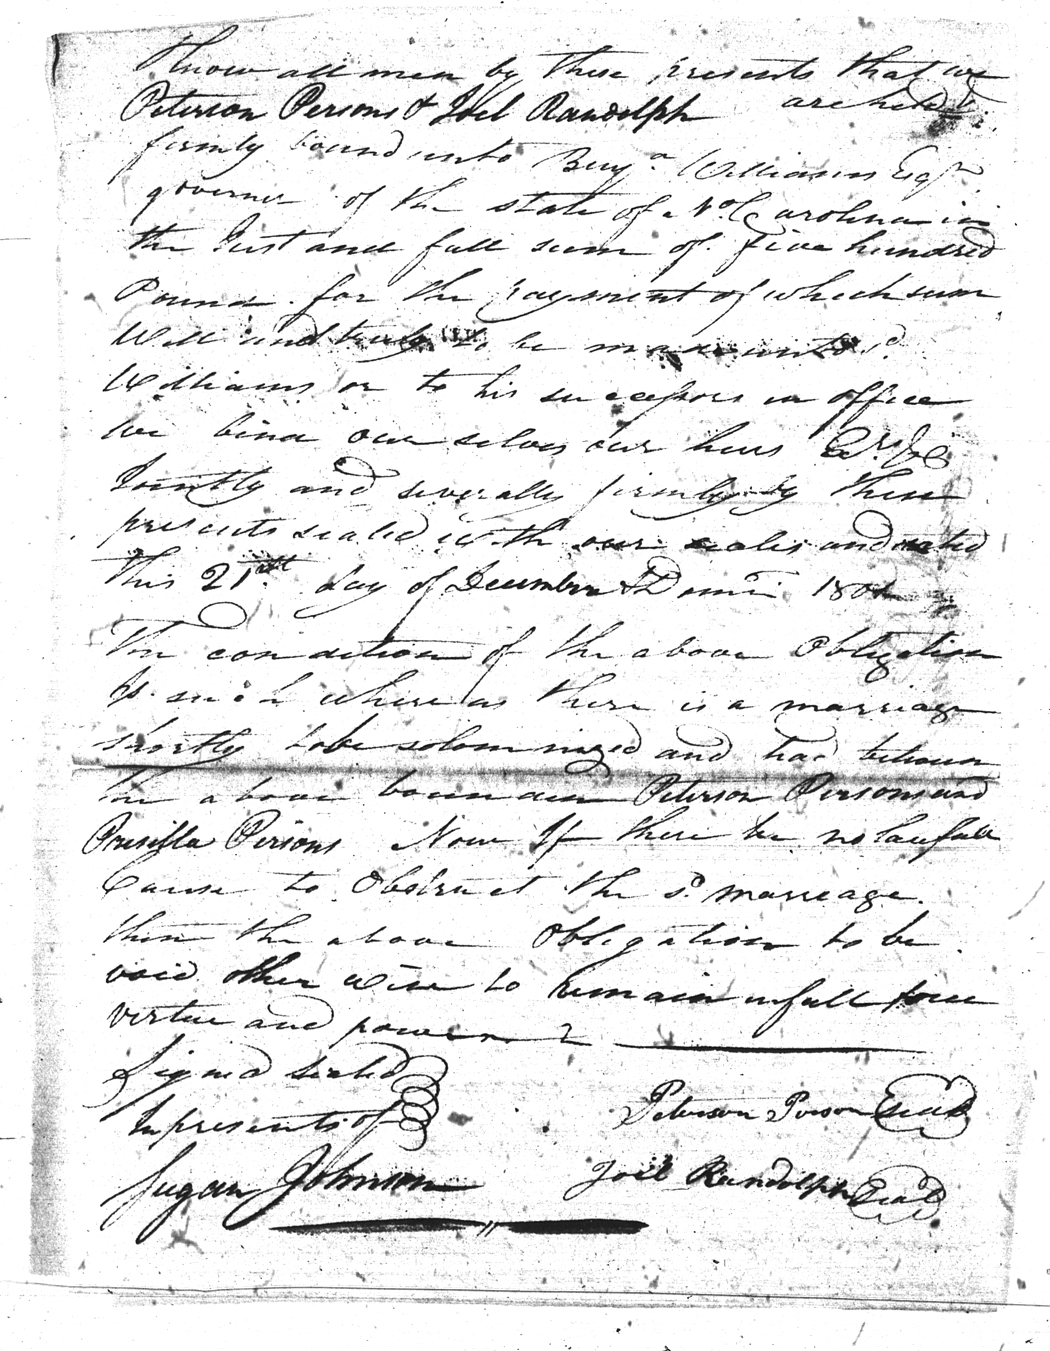 Know all men by these presents that we
Peterson Persons & Joel Randolph are held &
firmly bound unto Benjª. Williams Esqr
governer of the state of No. Carolina in
the Just and full sum of five hundred
Pound for the payment of which sum
Well and truly to be made unto sd.
Williams or to his successors in office
we bind our selves our heirs Exrs. &c
Jointly and severally firmly by these
presents sealed with our seales and dated
this 21st day of December Domini
The condition of the above Obligation
Is such where as there is a marriage
shortly to be solom nized and had between
the above bounden Peterson Persons and
Prisilla Persons Now If there be no lawfull
Cause to Obstruct the sd. marreage.
then the above Obligation to be
void other wise to remain in full force
virtue and power
Signed sealed
In presents of
Peterson Person Seal
Johnson
Joel Randolph Seal